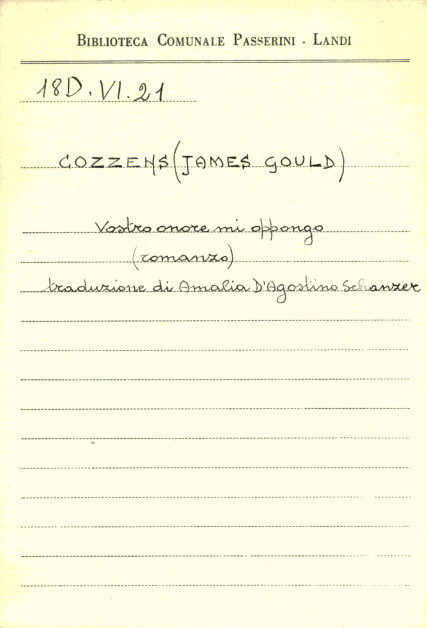 BIBLIOTECA COMUNALE PASSERINI - LANDI
18D.VI.21
COZZENS (JAMES GOULD)
Vostro onore mi oppongo
(romanzo)
traduzione di Amalia D'Agostino Schanzer